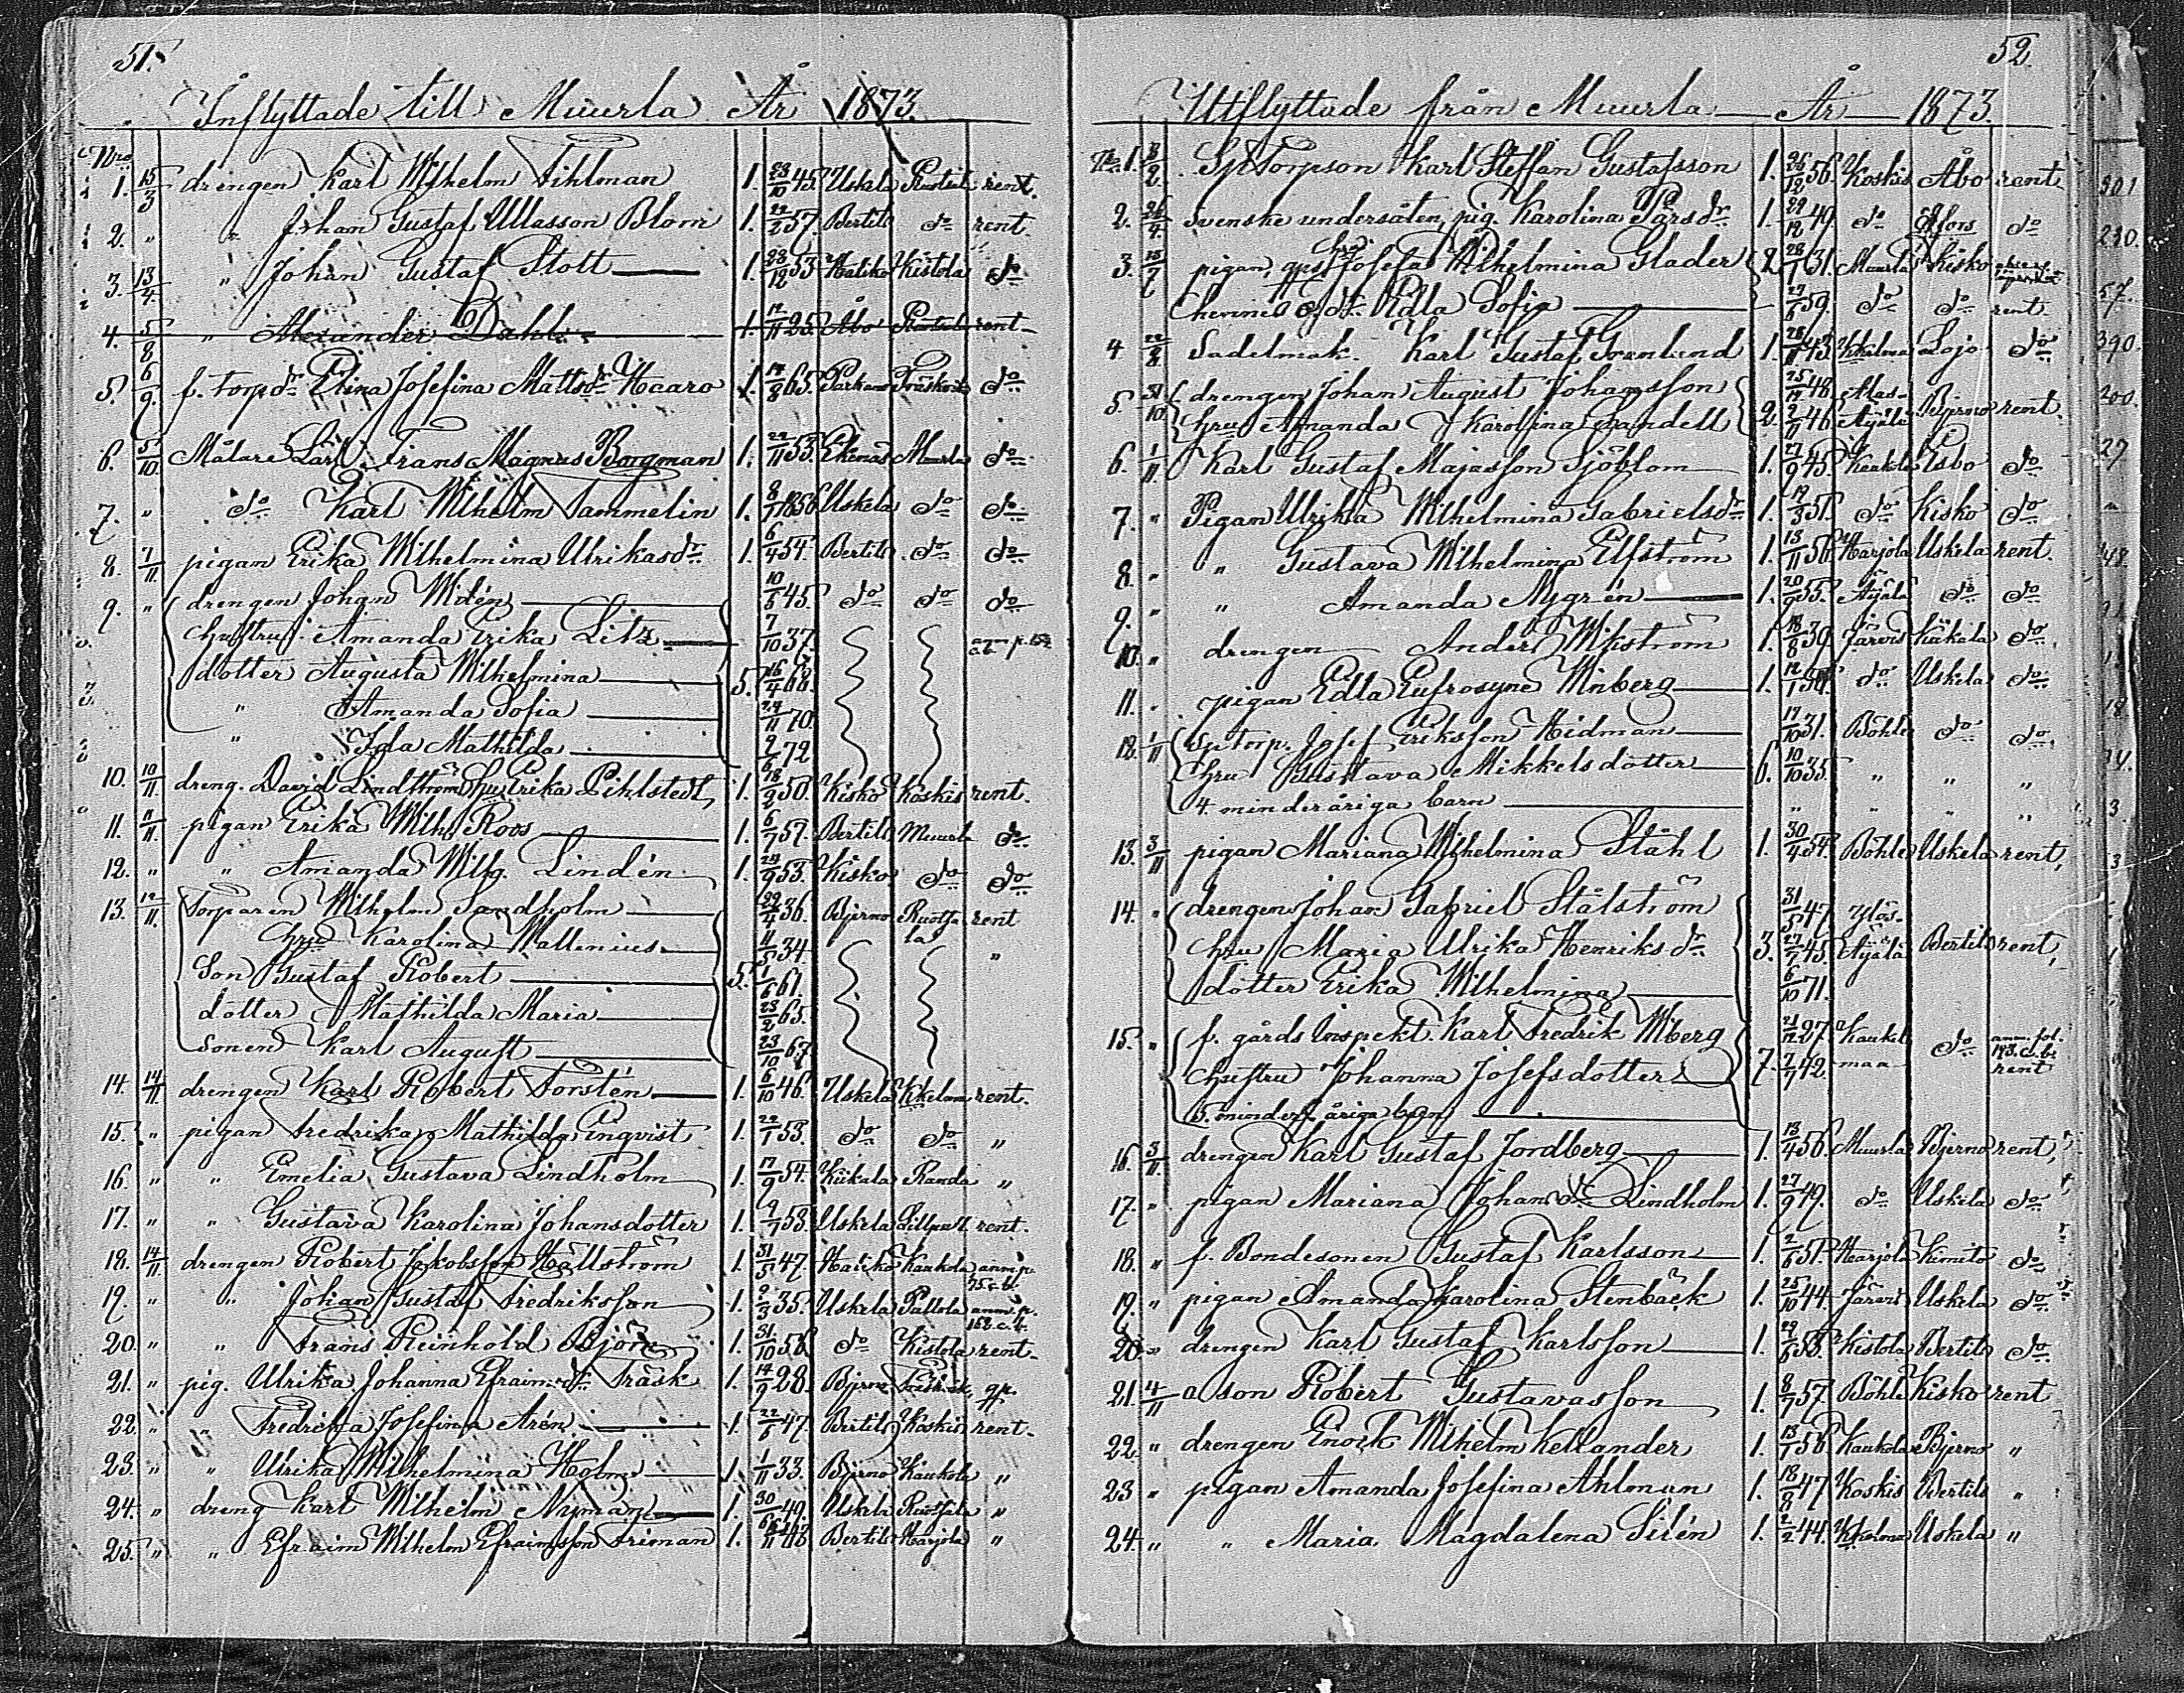 51.
Inflyttade till Muurla År 1873.
Nro
1. 15/3 drengen Karl Wilhelm Sihlman 1. 23/10 45. Uskela rent.
2. " " Johan Gustaf Ullasson Blom 1. 22/2 57. Bertils do rent.
3. 13/4. " Johan Gustaf Stolt 1. 28/12 53 Haliko Kistola do
4. 5/8 " Alexander Dahl 1. 17/11 25. Åbo rent
5. 6/9. f. torpdr Elina Josefina Mattsdr Haaro 1. 17/8 65. Parkano do
6. 5/10 Målare Lärl. Frans Magnus Borgman 1. 22/11 53. Ekenäs Muurla do
7. " do Karl Wilhelm Sammelin 1. 8/7 1856 Uskela do do
8. 7/11 pigan Erika Wilhelmina Ulrikasdr 1. 6/4 54. Bertils do do
9. " drengen Johan Widén 10/5 45. do do do
hustru Amanda Erika Litz 7/10 37.
dotter Augusta Wilhelmina 5. 16/4 68.
" Amanda Sofia 24/11 70.
" Ida Mathilda 2/6 72
10. 10/11 dreng. David Lindström Erika Pihlstedt 1. 18/2 50. Kisko Koskis rent.
11. 11/11 pigan Erika Wilh. Roos 1. 6/7 57. Bertils Muurla do
12. " " Amanda Wilh. Lindén 1. 24/9 53. Kisko do do
13. 12/11. Torparen Wilhelm Sandholm 22/4 36. Bjerno Ruotsala rent
hru Karolina Wallenius 11/5 34. "
Son Gustaf Robert 5. 1/6 61.
dotter Mathilda Maria 23/2 65.
sonen Karl August 23/10 67.
14. 14/11 drengen Karl Robert Torstén 1. 6/10 46. Uskela rent.
15. " pigan Fredrika Mathilda Enqvist 1. 22/1 53. do do "
16. " " Emelia Gustava Lindholm 1. 17/9 54. Kiikala Randa "
17. " " Gustava Karolina Johansdotter 1. 9/7 53. Uskela rent.
18. 14/11 drengen Robert Jakobsson Hällström 1. 31/5 47. Haliko Kaukola anm.p. 75 c.b.
19. " " Johan Gustaf Fredriksson 1. 9/3 35. Uskela Paltola anm. p. 162. c. b.
20. " " Frans Reinhold Björn 1. 31/10 58. do Kistola rent.
21. " pig. Ulrika Johanna Efraimsdr Träsk 1. 14/9 28. Bjerno
22. " " Fredrika Josefina Arén 1. 22/5 47. Bertils Koskis rent.
23. " " Ulrika Wilhelmina Holm 1. 1/11 33. Bjerno Kaukola "
24. " dreng Karl Wilhelm Nyman 1. 30/6 49. Uskela "
25. " " Efraim Wilhelm Efraimsson Friman 1. Bertils Harjola "
52.
Utflyttade från Muurla År 1873.
No 1. 3/2. Torpson Karl Steffan Gustafsson 1. 26/12 56. Koskis Åbo rent
2. 26/4 Svenske undersåten, pig. Karolina Parsdr 1. 29/12 49. do Hfors do
3. 15/7 pigan, Josefa Wilhelmina Glader 2. 28/1 31. Muurla Kisko
Edla Sofia 27/6 59. do do rent.
4 22/8 Sadelmak. Karl Gustaf Granlund 1. 28/11 43. Lojo do
5. 31/10 drengen Johan August Johansson 25/12 48. Alas-
hru Amanda Karolina Sandell 2. 2/11 46 Äijälä Bjerno rent.
6. 1/11 Karl Gustaf Majasson Sjöblom 1. 27/9 45. Kaukola Esbo do
7. " Pigan Ulrika Wilhelmina Gabrielsdr 1. 19/3 51. do Kisko do
8. " " Gustava Wilhelmina Elfström 1. 13/11 56. Harjola Uskela rent.
9. " " Amanda Nygrén 1. 20/9 55. Äijälä do do
10. " drengen Anders Wikström 1. 18/8 39. Järvis Kiikala do
11. " pigan Edla Eufrosyne Winberg 1. 12/1 54. do Uskela do
12. 1/11 Sptorp. Josef Eriksson Hidman 17/10 31. Böhle do do
hru Gustava Mikkelsdotter 6. 10/10 35. " " "
4. minderåriga barn " " " "
13. 3/11 pigan Mariana Wilhelmina Ståhl 1. 30/4 54. Böhle Uskela rent,
14. " drengen Johan Gabriel Stålström 31/5 47. Yläs-
hru Maria Ulrika Henriksdr 3. 27/7 45. Äijälä Bertils rent,
dotter Erika Wilhelmina 6/10 71.
15. " f. gårds Inspekt. Karl Fredrik Wiberg 21/12 27. Kaukola do anm. fol. 193. c. b.
hustru Johanna Josefsdotter 7. 2/7 42. maa rent
5. minderåriga barn
16. 3/11. drengen Karl Gustaf Jordberg 1. 13/4 56. Muurla Bjerno rent,
17. " pigan Mariana Johansdr Lindholm 1. 27/9 49. do Uskela do
18. " f. Bondesonen Gustaf Karlsson 1. 2/6 51. Harjola Kimito do
19. " pigan Amanda Karolina Stenbäck 1. 25/10 44. Järvis Uskela do
20. " drengen Karl Gustaf Karlsson 1. 29/6 55. Kistola Bertils do
21. 4/11 a son Robert Gustavasson 1. 8/7 57. Böhle Kisko rent
22. " drengen Enock Wilhelm Kellander 1. 13/1 56. Kaukola Bjerno "
23 " pigan Amanda Josefina Ahlman 1. 18/8 47. Koskis Bertils "
24. " " Maria Magdalena Sirén 1. 2/2 44. Uskela "
301
230.
57.
390.
200.
29